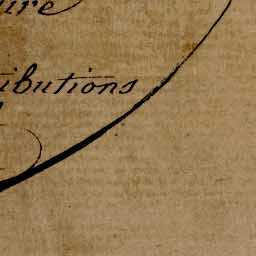 ire
ibutions